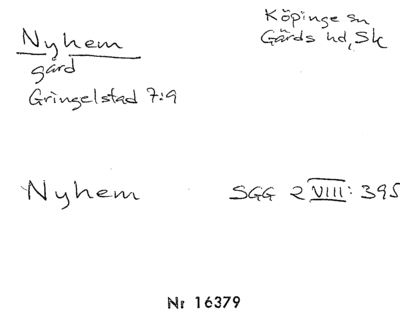 Nyhem
gård
Gringelstad 7:9
Köpinge sn
Gärds hd, Sk
Nyhem
SGG 2 VIII: 395
Nr 16379